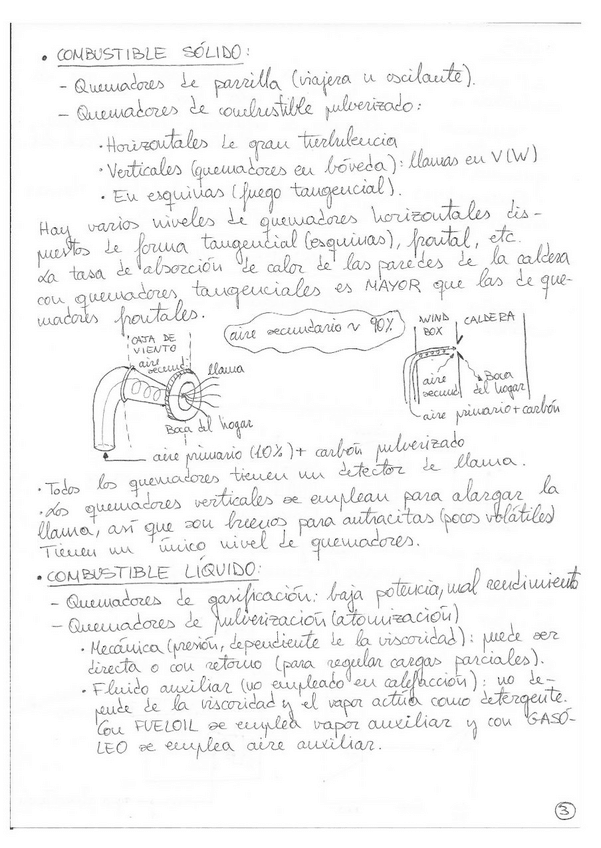 • COMBUSTIBLE SÓLIDO:
- Quemadores de parrilla (viajera u oscilante).
- Quemadores de combustible pulverizado:
· Horizontales de gran turbulencia
· Verticales (quemadores en bóveda): llamas en V (W)
· En esquinas (fuego tangencial).
Hay varios niveles de quemadores horizontales dis-
puestos de forma tangencial (esquinas), frontal, etc.
La tasa de absorción de calor de las paredes de la caldera
con quemadores tangenciales es MAYOR que las de que-
madores frontales.
CAJA DE
VIENTO
aire
secund.
llama
Boca del hogar
aire primario (10%) + carbón pulverizado
aire secundario ~ 90%
WIND
BOX
CALDERA
aire
secund.
Boca
del hogar
aire primario + carbón
· Todos los quemadores tienen un detector de llama.
· Los quemadores verticales se emplean para alargar la
llama, así que son buenos para antracitas (pocos volátiles)
Tienen un único nivel de quemadores.
• COMBUSTIBLE LÍQUIDO:
- Quemadores de gasificación: baja potencia, mal rendimiento
- Quemadores de pulverización (atomización)
· Mecánica (presión, dependiente de la viscosidad): puede ser
directa o con retorno (para regular cargas parciales).
· Fluido auxiliar (no empleado en calefacción): no de-
pende de la viscosidad y el vapor actúa como detergente.
Con FUELOIL se emplea vapor auxiliar y con GASÓ-
LEO se emplea aire auxiliar.
3